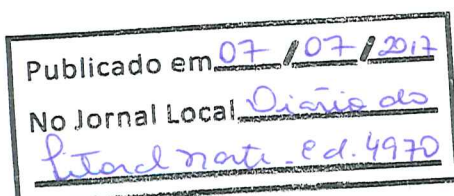 Publicado em 07 / 07 / 2017
No Jornal Local Diário do
Litoral norte - ed. 4970